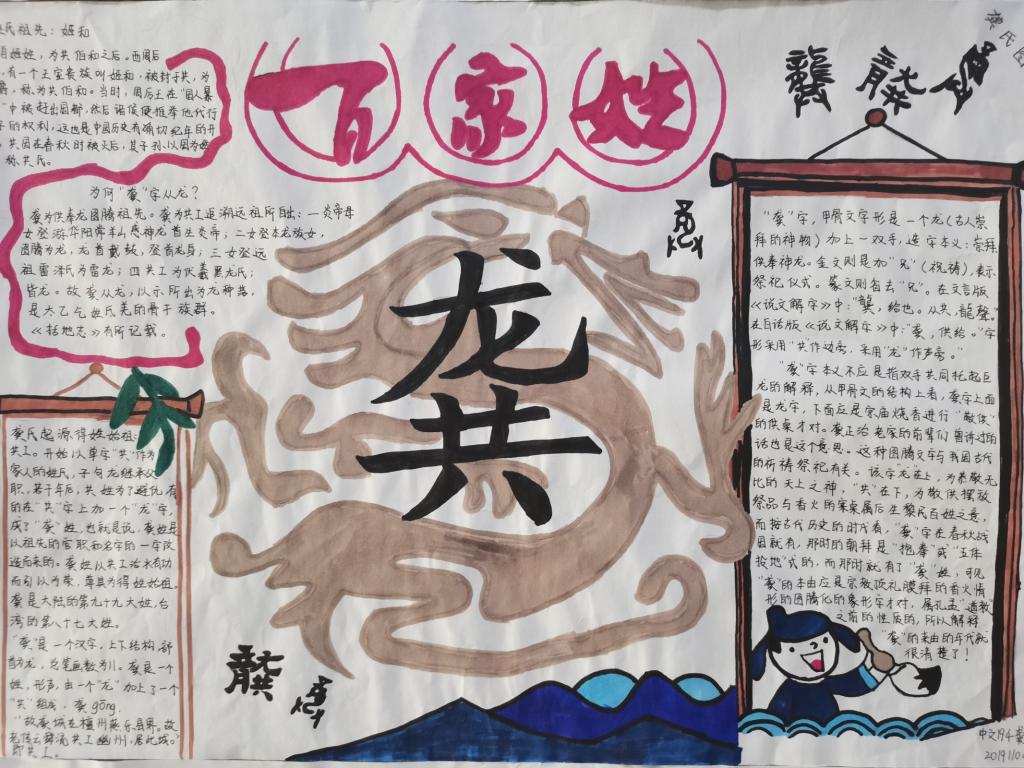 百家姓
氏祖先：姬和
姬姓，为共伯和之后。西周后
有一个王室贵族叫姬和，被封于共，为
称为共伯和。当时，周厉王在“国人暴
”中被赶出国都，然后诸侯便推举他代行
的权利，这也是中国历史有确切纪年的开
共国在春秋时被灭后，其子孙以国为姓
称共氏。
为何“龚”字从龙？
龚为供奉龙图腾祖先。龚为共工追溯远祖所自出：一炎帝母
女登游华阳常羊山感神龙首生炎帝；二女登本龙族女，
图腾为龙，龙首戴鼓，登者龙身；三女登远
祖雷泽氏为雷龙；四共工为伏羲黑龙氏；
皆龙。故龚从龙，以示所出为龙种落，
是太乙乞姓氏羌的骨子族群。
《括地志》有所记载。
龚氏起源得姓始祖：
共工。开始以单字“共”作为
家人的姓氏，子句龙继承父
职，若干年后，共姓为了避仇，有
的在“共”字上加一个“龙”字，
成了“龚”姓，也就是说，龚姓是
以祖先的官职和名字的一字改
造而来的。龚姓以共工治水有功
而引以为荣，尊其为得姓始祖。
龚是大陆的第九十九大姓，台
湾的第八十七大姓。
“龚”是一个汉字，上下结构，部
首为龙，总笔画数为11。龚是一个
姓，形声，由一个“龙”加上了一个
“共”组成，龚gōng．
“故龚城在檀州燕乐县界。故
老传云舜流共工幽州，居此城。”
即共工。
龚
龚
龚
“龚”字，甲骨文字形是一个龙（古人崇
拜的神物）加上一双手，造字本义：崇拜
供奉神龙。金文则是加“兄”（祝祷），表示
祭祀仪式。篆文则省去“兄”。在文言版
《说文解字》中：“龔，给也。从共，龍聲。”
在白话版《说文解字》中：“龚，供给。”字
形采用“共”作边旁，采用“龙”作声旁。”
“龚”字本义不应是指双手共同托起巨
龙的解释，从甲骨文的结构上看，龚字上面
是龙字，下面应是宗庙烧香进行“敬供”
的供桌才对。龚正治老家的前辈们曾讲过的
话也是这个意思。这种图腾文字与我国古代
的祈祷祭祀有关。该字龙在上，为恭敬无
比的天上之神，“共”在下，为敬供摆放
祭品与香火的案桌属后生黎民百姓之意，
而按古代历史的时代看，“龚”字在春秋战
国就有，那时的朝拜是“抱拳”或“五体
投地”式的，而那时就有了“龚”姓，可见
“龚”的本由应是宗教顶礼膜拜的香火情
形的图腾化的象形字才对，属孔孟“道教”
之前的性质的，所以解释
“龚”的来由的年代就
很清楚了！
中文194龚
2019110